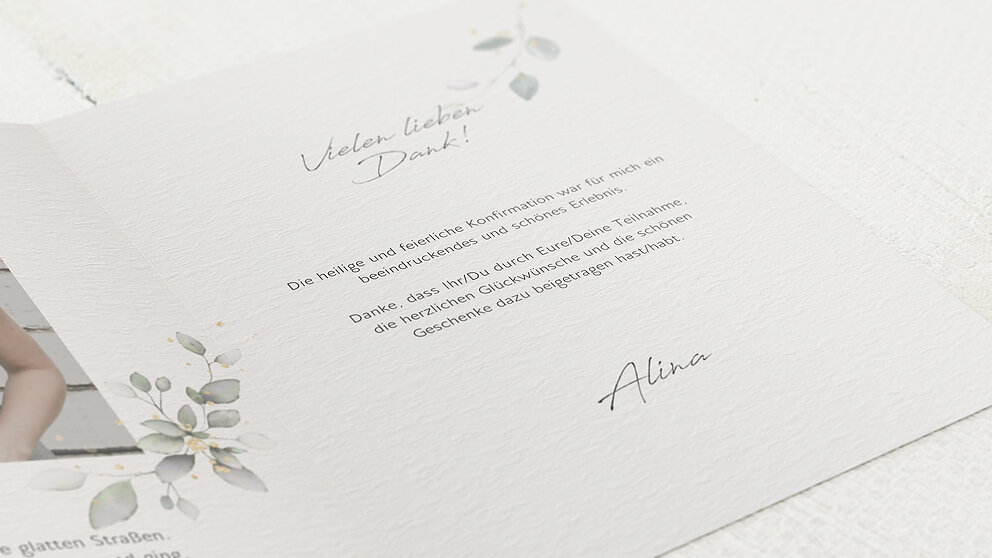 Vielen lieben
Dank!
Die heilige und feierliche Konfirmation war für mich ein
beeindruckendes und schönes Erlebnis.
Danke, dass Ihr/Du durch Eure/Deine Teilnahme,
die herzlichen Glückwünsche und die schönen
Geschenke dazu beigetragen hast/habt.
Alina
e glatten Straßen.
ging